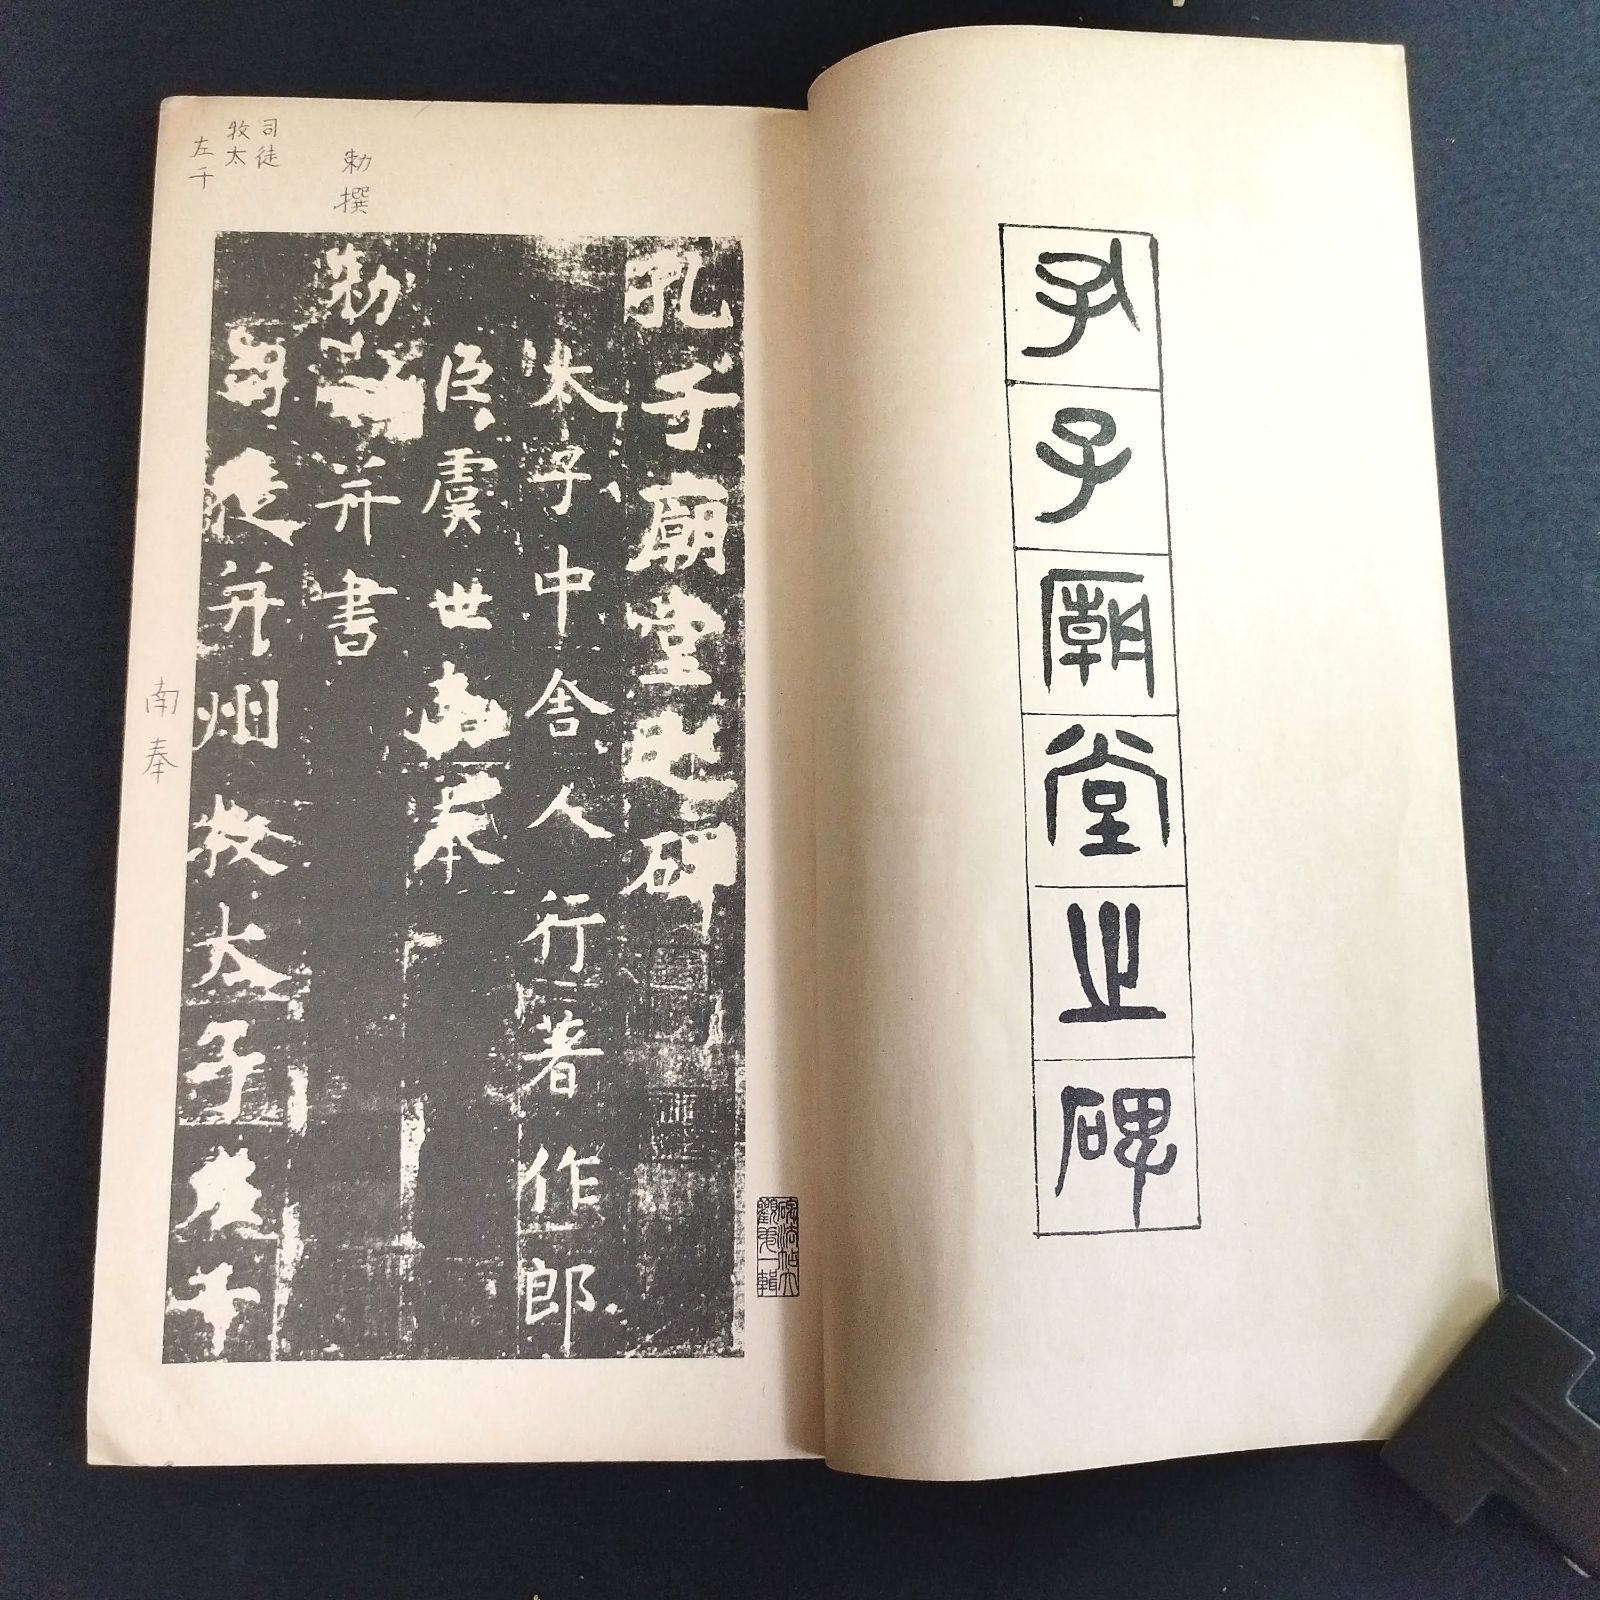 孔子廟堂之碑
孔子廟堂之碑
太子中舍人行著作郎
臣虞世南奉
勅撰并書
司徒并州牧太子左千
勅撰
司徒
牧太
左千
南奉
碑法帖大
觀第一輯